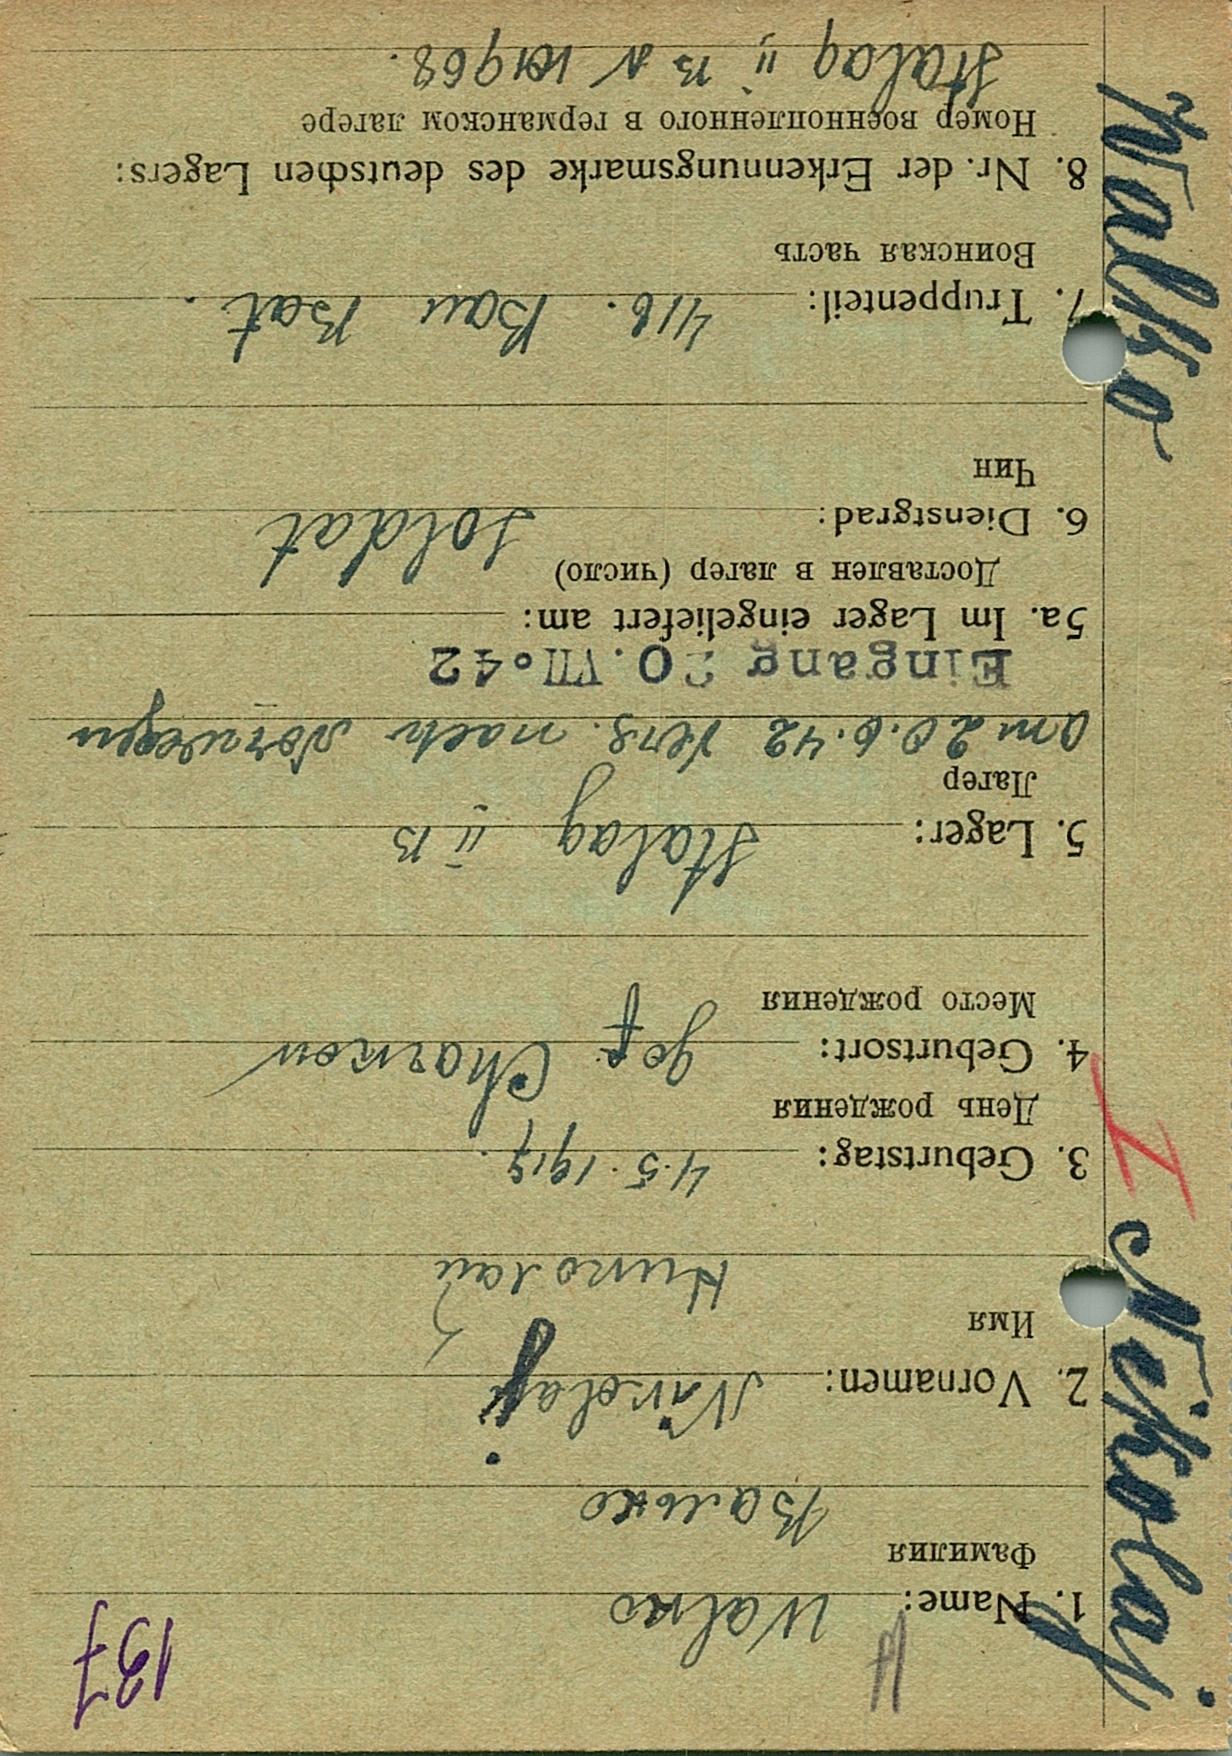 137
1. Name: Walko
Фамилия
Валько
2. Vornamen: Nikolaj
Имя
Николай
3. Geburtstag: 4.5.1917.
День рождения
4. Geburtsort: Charkow
Место рождения
5. Lager: Stalag II B
Лагер
am 20.6.42 vers. nach Norwegen
Eingang 20.VII.42
5a. Im Lager eingeliefert am:
Доставлен в лагер (число)
6. Dienstgrad: Soldat
Чин
7. Truppenteil: 416. Bau Bat.
Воинская часть
8. Nr. der Erkennungsmarke des deutschen Lagers:
Номер военнопленного в германском лагере
Stalag II B N 101968.
Walko
I
Nikolaj